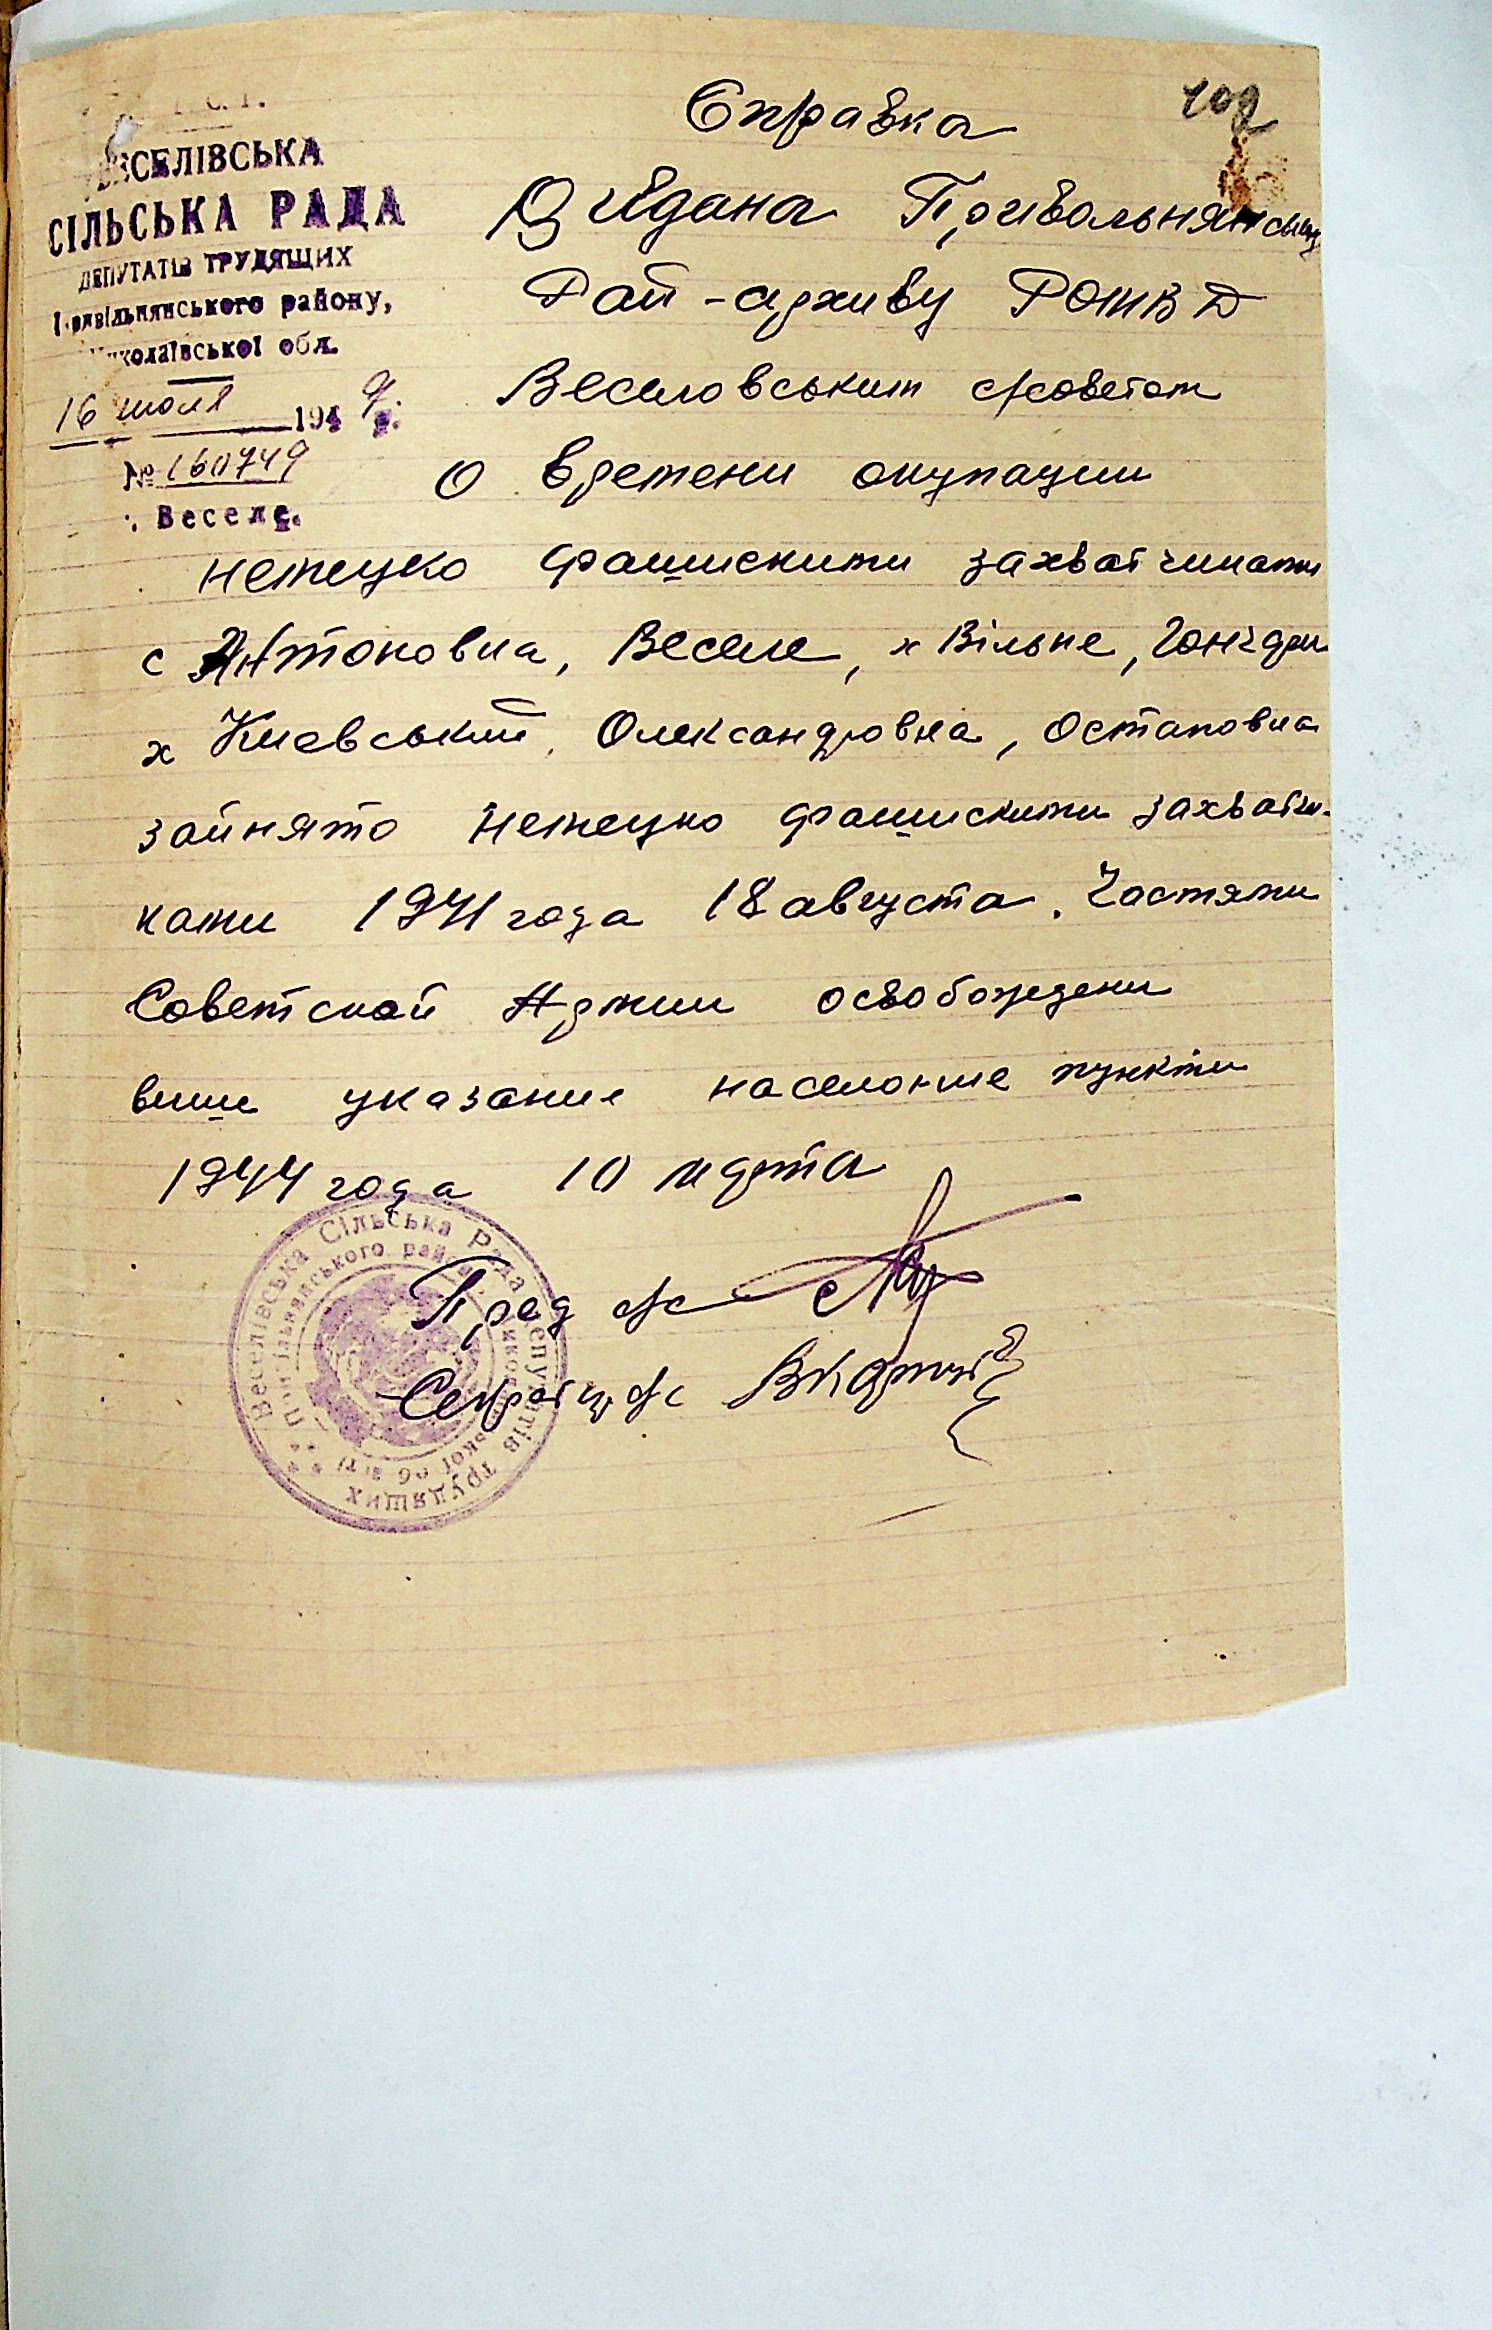 Справка
102
ВЕСЕЛІВСЬКА
СІЛЬСЬКА РАДА
ДЕПУТАТІВ ТРУДЯЩИХ
Привільнянського району,
Миколаївської обл.
16 июля 1949 р.
№ 160749
с. Веселе.
Видана Привольнянському
Рай-архиву РОМВД
Веселовським с/советом
О времени окупации
немецко фашискими захватчиками
с Антоновка, Веселе, х Вільне, Гончари
х Киевський, Олександровка, Остаповка
зайнято немецко фашискими захватчи-
ками 1941 года 18 августа. Частями
Советской Армии освобождени
више указание населоние пункти
1944 года 10 марта
Пред с/с
Секретар с/с
Веселівська Сільська Рада депутатів трудящих
Привільнянського району Миколаївської області